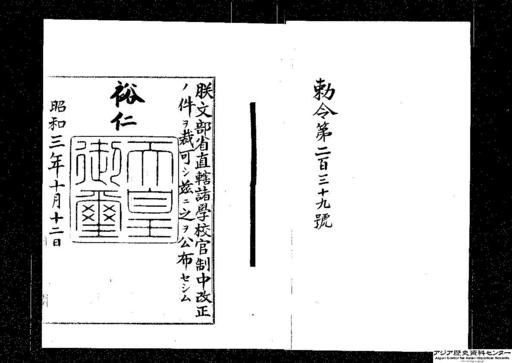 勅令第二百三十九號
朕文部省直轄諸學校官制中改正
ノ件ヲ裁可シ茲ニ之ヲ公布セシム
裕仁
天皇
御璽
昭和三年十月十二日
アジア歴史資料センター
Japan Center for Asian Historical Records